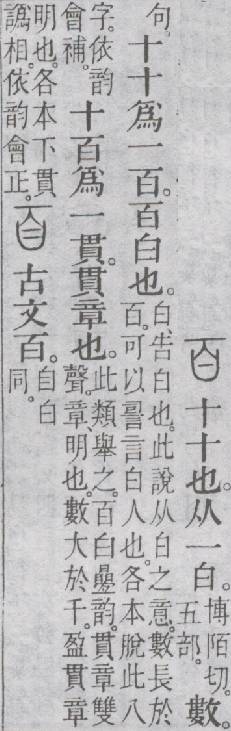 百十十也。从一白。博陌切。五部。數。
句十十爲一百。百白也。白、告白也。此說从白之意。數長於百。可以詈言白人也。各本脫此八
字。依韵會補。十百爲一貫。貫章也。此類舉之。百白曡韵。貫章雙聲。章明也。數大於千。盈貫章
明也。各本下貫譌相。依韵會正。𦣻古文百。自白同。